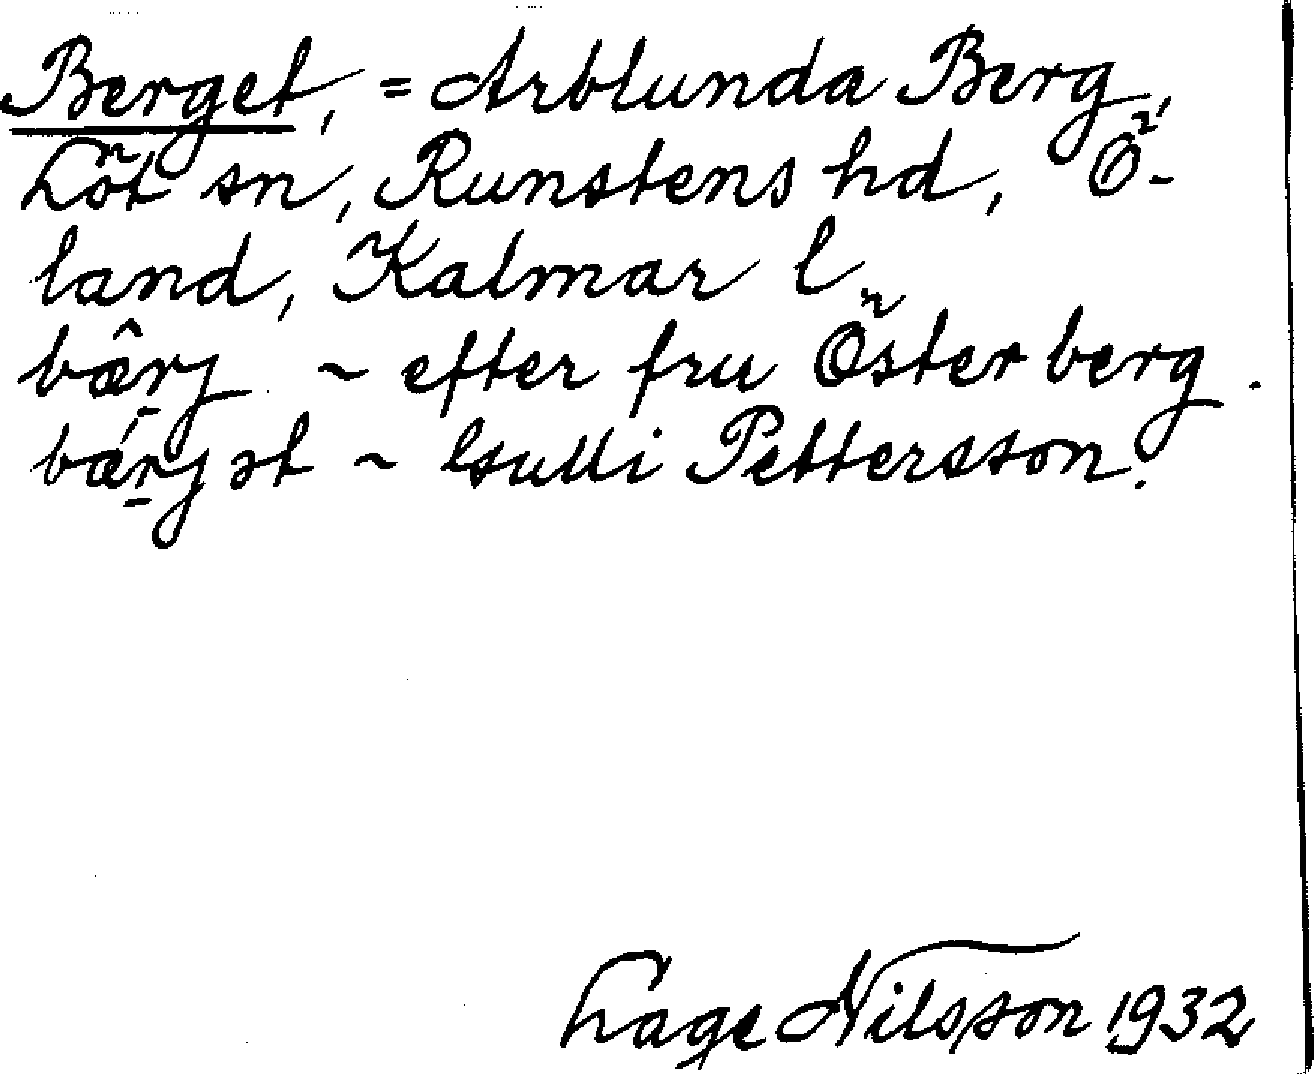 Berget, = Arblunda Berg,
Löt sn, Runstens hd, Ö-
land, Kalmar l.
bæ̂r̠j ~ efter fru Österberg.
bǽr̠jət ~ Gulli Pettersson.
Lage Nilsson 1932